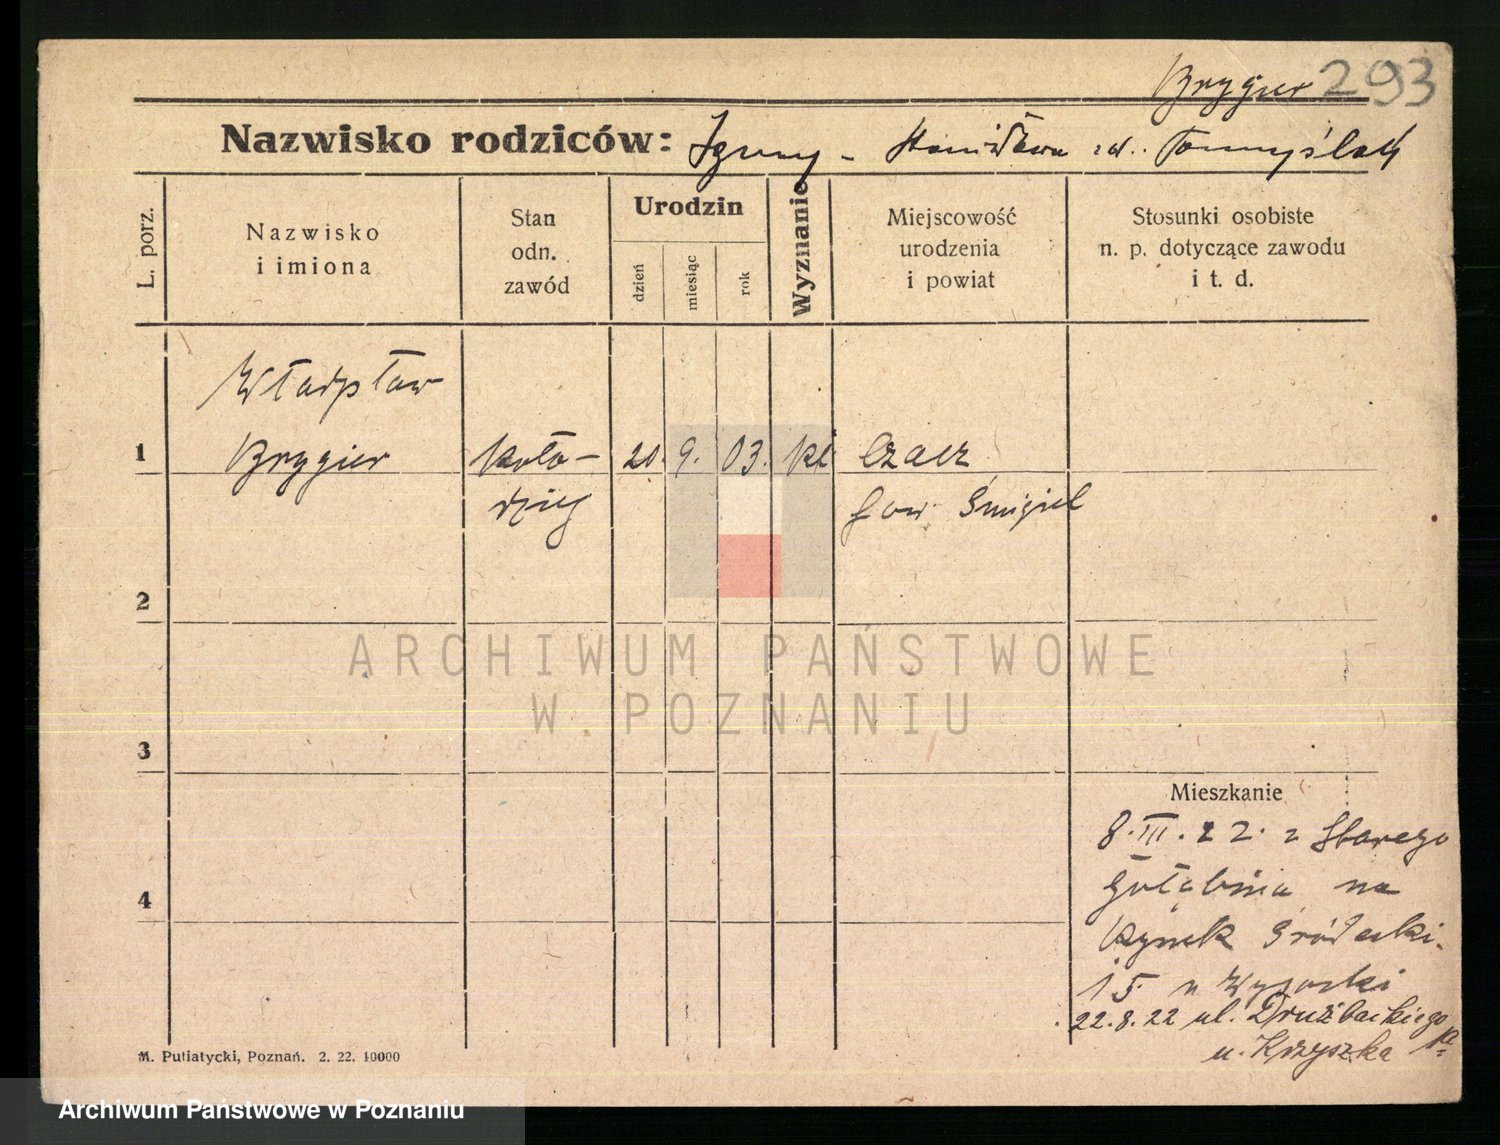 Brygier 293
Nazwisko rodziców: Ignacy - Stanisława zd. Tomyślak
L. porz.
Nazwisko
i imiona
Stan
odn.
zawód
Urodzin
dzień
miesiąc
rok
Wyznanie
Miejscowość
urodzenia
i powiat
Stosunki osobiste
n. p. dotyczące zawodu
i t. d.
Władysław
1 Brygier koło- 20. 9. 03. kt Czacz
dziej pow. Śmigiel
2
3
4
Mieszkanie
8. III. 22. z Starego
Gołębina na
Rynek Śródecki
15 u Wysocki
22.8.22 ul. Drużbackiego
u. Krzyszka
M. Putiatycki, Poznań. 2. 22. 10000
ARCHIWUM PAŃSTWOWE
W POZNANIU
Archiwum Państwowe w Poznaniu